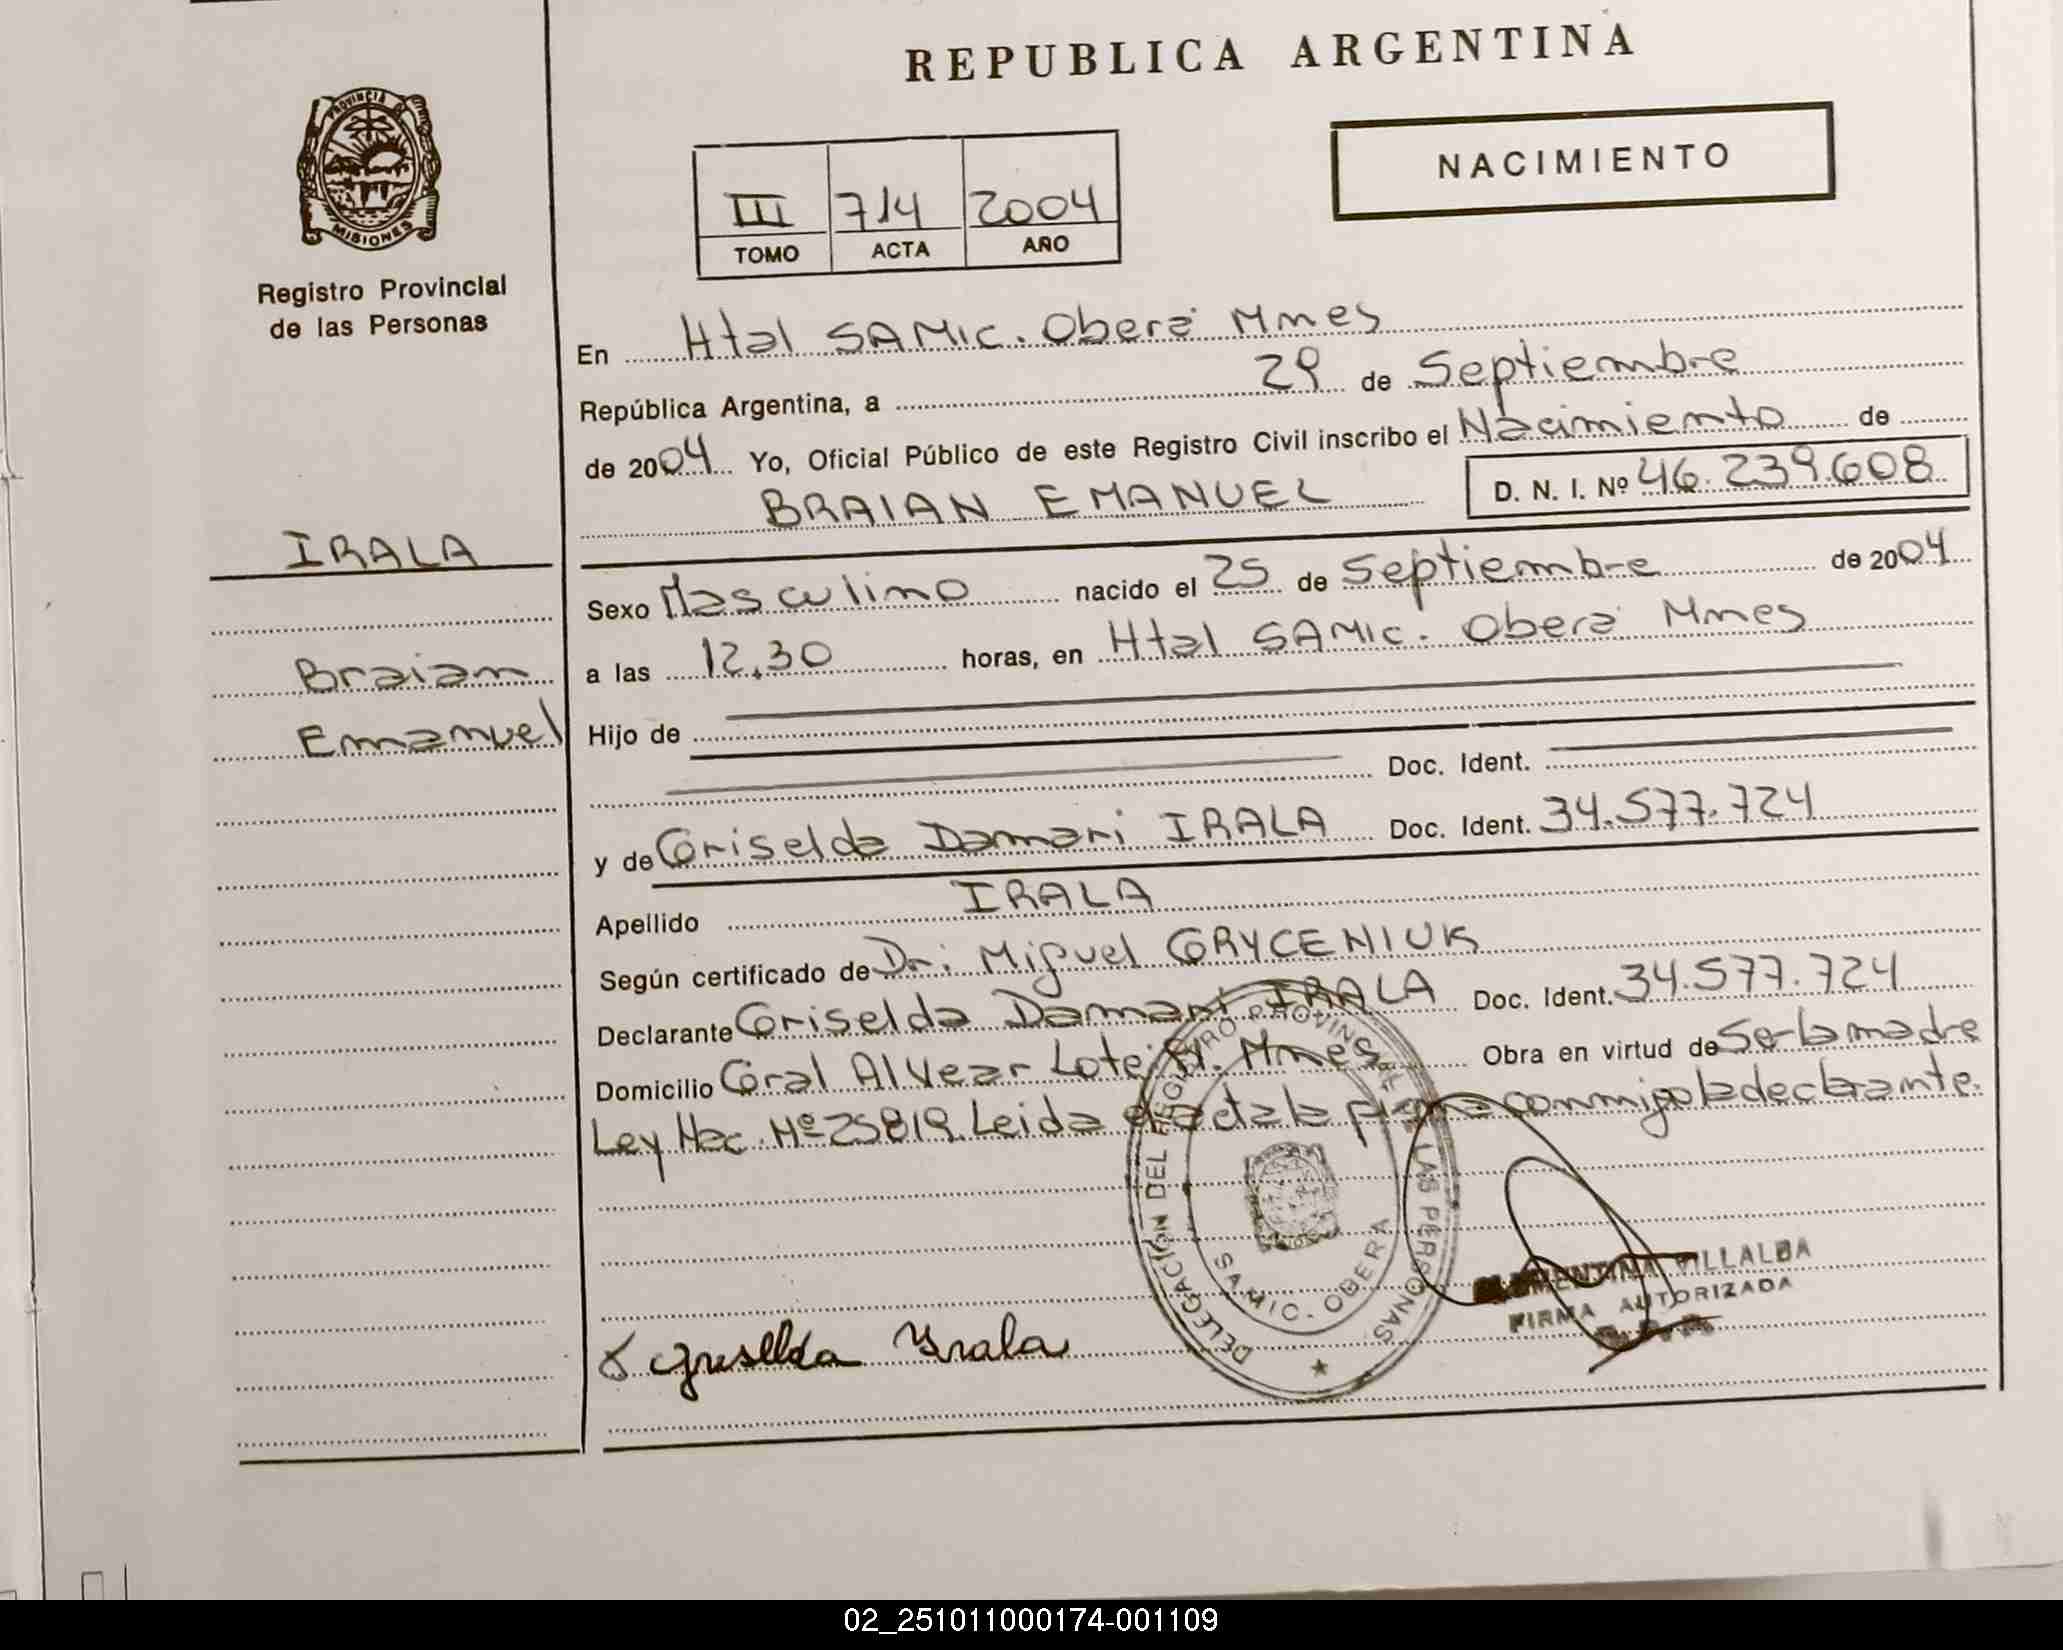 REPUBLICA ARGENTINA
PROVINCIA DE
MISIONES
Registro Provincial
de las Personas
NACIMIENTO
III 714 2004
TOMO ACTA AÑO
En Htal SAMIC. Oberá Mnes
República Argentina, a 29 de Septiembre
de 2004 Yo, Oficial Público de este Registro Civil inscribo el Nacimiento de
BRAIAN EMANUEL D. N. I. Nº 46.239.608
IRALA
Braian
Emanuel
Sexo Masculino nacido el 25 de Septiembre de 2004
a las 12.30 horas, en Htal SAMIC. Oberá Mnes
Hijo de
Doc. Ident.
y de Griselda Damari IRALA Doc. Ident. 34.577.724
Apellido IRALA
Según certificado de Dr: Miguel GRYCENIUK
Declarante Griselda Damari IRALA Doc. Ident. 34.577.724
Domicilio Gral Alvear Lote Mnes Obra en virtud de Se la madre
Ley Nac. Nº 25819. Leida el acta la firma conmigo la declarante.
DELEGACIÓN DEL REGISTRO PROVINCIAL DE LAS PERSONAS
SAMIC. OBERA
VILLALBA
FIRMA AUTORIZADA
Griselda Irala
02_251011000174-001109